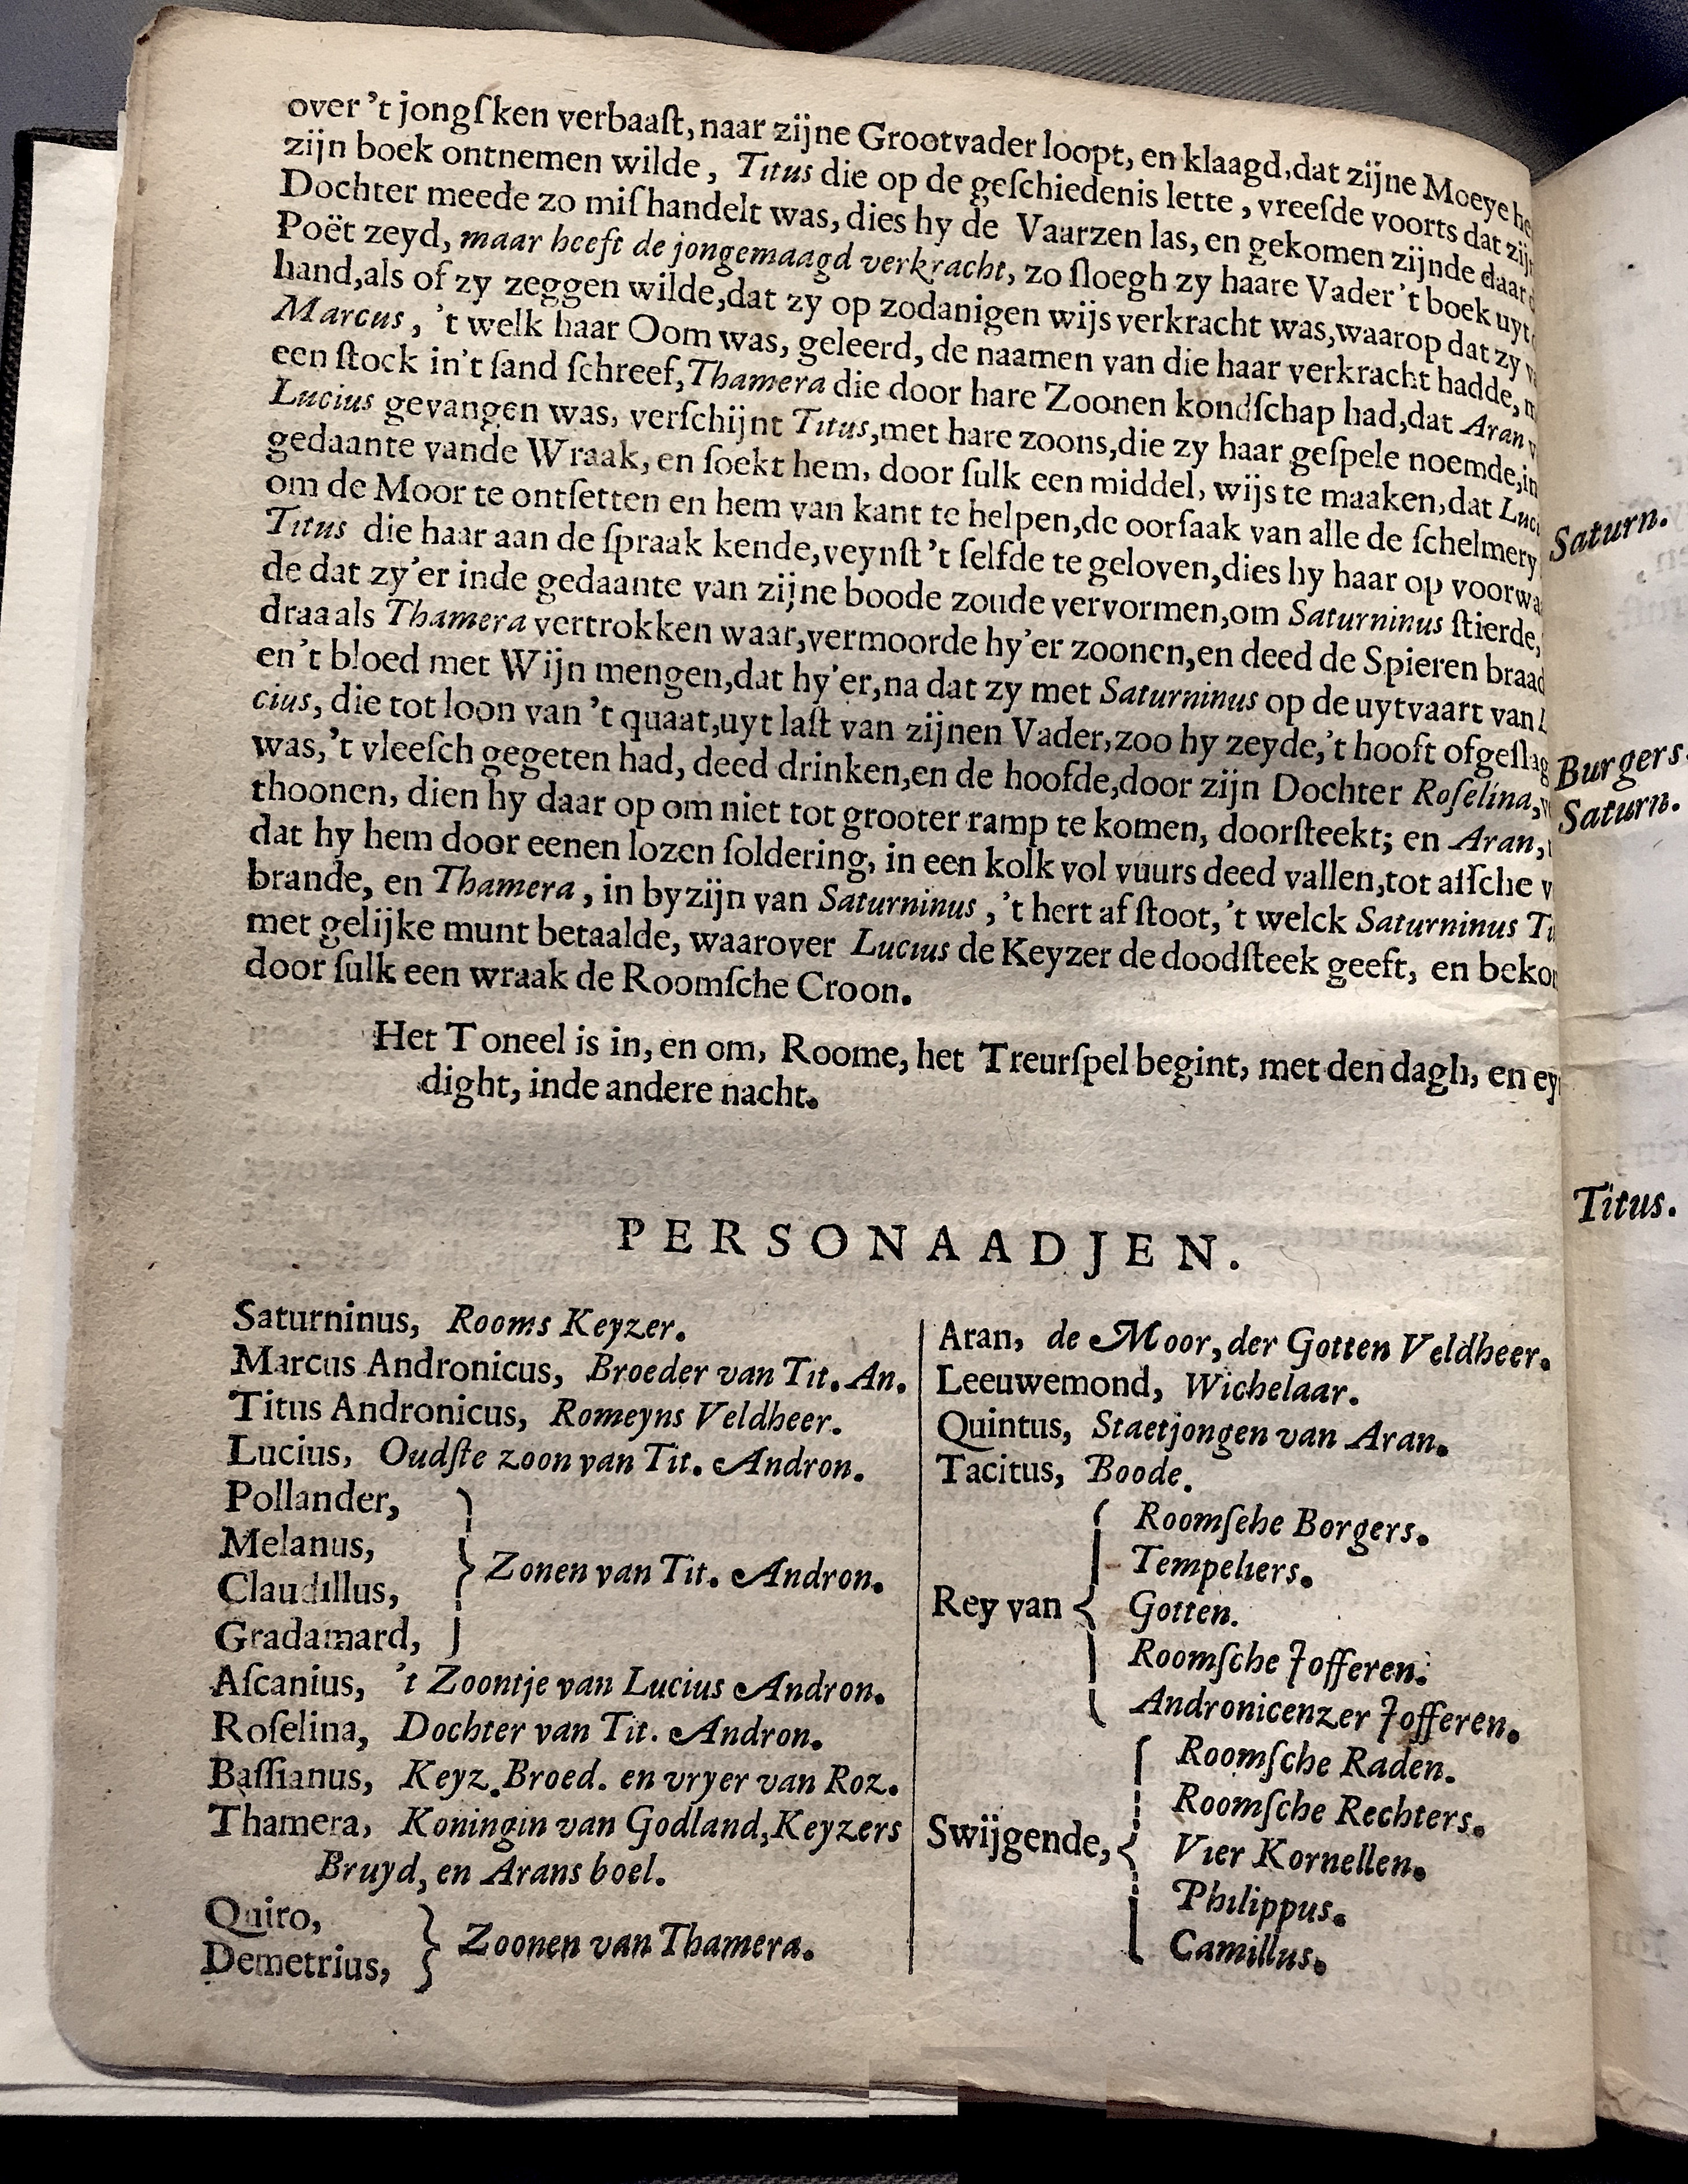 over 't jongſken verbaaſt, naar zijne Grootvader loopt, en klaagd, dat zijne Moeye
zijn boek ontnemen wilde, Titus die op de geſchiedenis lette, vreeſde voorts dat
Dochter meede zo miſhandelt was, dies hy de Vaarzen las, en gekomen zijnde
Poët zeyd, maar heeft de jongemaagd verkracht, zo ſloegh zy haare Vader 't boek
hand, als of zy zeggen wilde, dat zy op zodanigen wijs verkracht was, waarop dat zy
Marcus, 't welk haar Oom was, geleerd, de naamen van die haar verkracht hadde,
een ſtock in't ſand ſchreef, Thamera die door hare Zoonen kondſchap had, dat Aran
Lucius gevangen was, verſchijnt Titus, met hare zoons, die zy haar geſpele noemde, in
gedaante vande Wraak, en ſoekt hem, door ſulk een middel, wijs te maaken, dat
om de Moor te ontſetten en hem van kant te helpen, de oorſaak van alle de ſchelmery
Titus die haar aan de ſpraak kende, veynſt 't ſelfde te geloven, dies hy haar op
de dat zy'er inde gedaante van zijne boode zoude vervormen, om Saturninus ſtierde,
draa als Thamera vertrokken waar, vermoorde hy'er zoonen, en deed de Spieren
en't bloed met Wijn mengen, dat hy'er, na dat zy met Saturninus op de uytvaart van
cius, die tot loon van 't quaat, uyt laſt van zijnen Vader, zoo hy zeyde, 't hooft
was, 't vleeſch gegeten had, deed drinken, en de hoofde, door zijn Dochter Roſelina,
thoonen, dien hy daar op om niet tot grooter ramp te komen, doorſteekt; en Aran,
dat hy hem door eenen lozen ſoldering, in een kolk vol vuurs deed vallen, tot aſſche
brande, en Thamera, in byzijn van Saturninus, 't hert af ſtoot, 't welck Saturninus
met gelijke munt betaalde, waarover Lucius de Keyzer de doodſteek geeft, en
door ſulk een wraak de Roomſche Croon.
Het Toneel is in, en om, Roome, het Treurſpel begint, met den dagh, en
dight, inde andere nacht.
PERSONAADJEN.
Saturninus, Rooms Keyzer.
Marcus Andronicus, Broeder van Tit. An.
Titus Andronicus, Romeyns Veldheer.
Lucius, Oudſte zoon van Tit. Andron.
Pollander,
Melanus,
Claudillus,
Gradamard,
Zonen van Tit. Andron.
Aſcanius, 't Zoontje van Lucius Andron.
Roſelina, Dochter van Tit. Andron.
Baſſianus, Keyz. Broed. en vryer van Roz.
Thamera, Koningin van Godland, Keyzers
Bruyd, en Arans boel.
Quiro,
Demetrius,
Zoonen van Thamera.
Aran, de Moor, der Gotten Veldheer.
Leeuwemond, Wichelaar.
Quintus, Staetjongen van Aran.
Tacitus, Boode.
Rey van
Roomſche Borgers.
Tempeliers.
Gotten.
Roomſche Jofferen.
Andronicenzer Jofferen.
Swijgende,
Roomſche Raden.
Roomſche Rechters.
Vier Kornellen.
Philippus.
Camillus.
Saturn.
Burgers.
Saturn.
Titus.